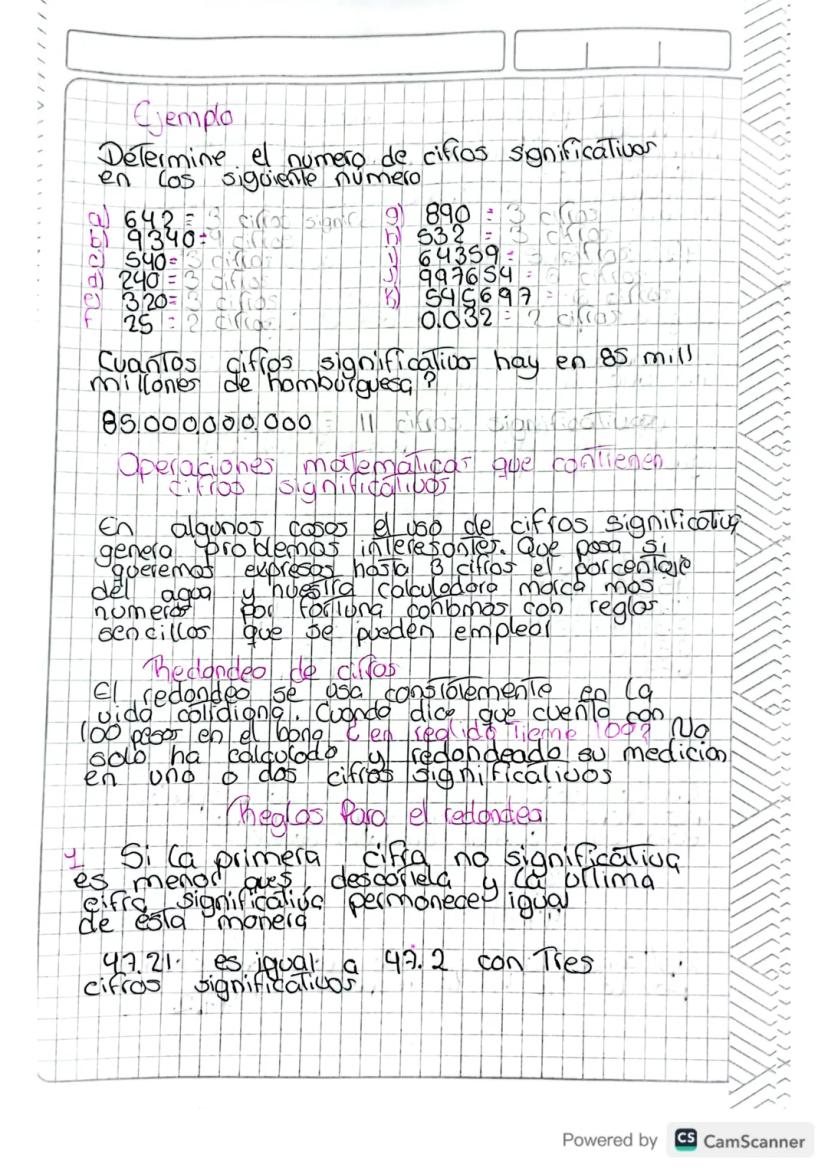 Ejemplo
Determine el numero de cifras significativas
en los siguiente número
a) 642 = 3 cifras signific
b) 9340 = 4 cifras
c) 540 = 3 cifras
d) 240 = 3 cifras
e) 320 = 3 cifras
f 25 = 2 cifras
g) 890 = 3 cifras
h) 532 = 3 cifras
i) 64359 = cifras
j) 997654 = cifras
k) 545697 = 6 cifras
0.032 = 2 cifras
Cuantos cifras significativas hay en 85 mill
millones de hamburguesa?
85.000.000.000 = 11 cifras significativas
Operaciones matemáticas que contienen
cifras significativas
En algunos casos el uso de cifras significativa
genera problemas interesantes. Que pasa si
queremos expresas hasta 3 cifras el porcentaje
del agua y nuestra calculadora marca mas
numeros por fortuna contamos con reglas
sencillas que se pueden emplear
Redondeo de cifras
El redondeo se usa constotemente en la
vida cotidiana. Cuando dice que cuenta con
100 pesos en el bano ¿en realida tieme 100? No
solo ha calculado y redondeado su medicion
en una o dos cifras significativos
Reglas Para el redondeo
1 Si la primera cifra no significativa
es menor ques descortela y la ultima
cifra significativa permanece igual
de esta manera
47.21. es igual a 47.2 con Tres
cifras significativos.
Powered by CS CamScanner